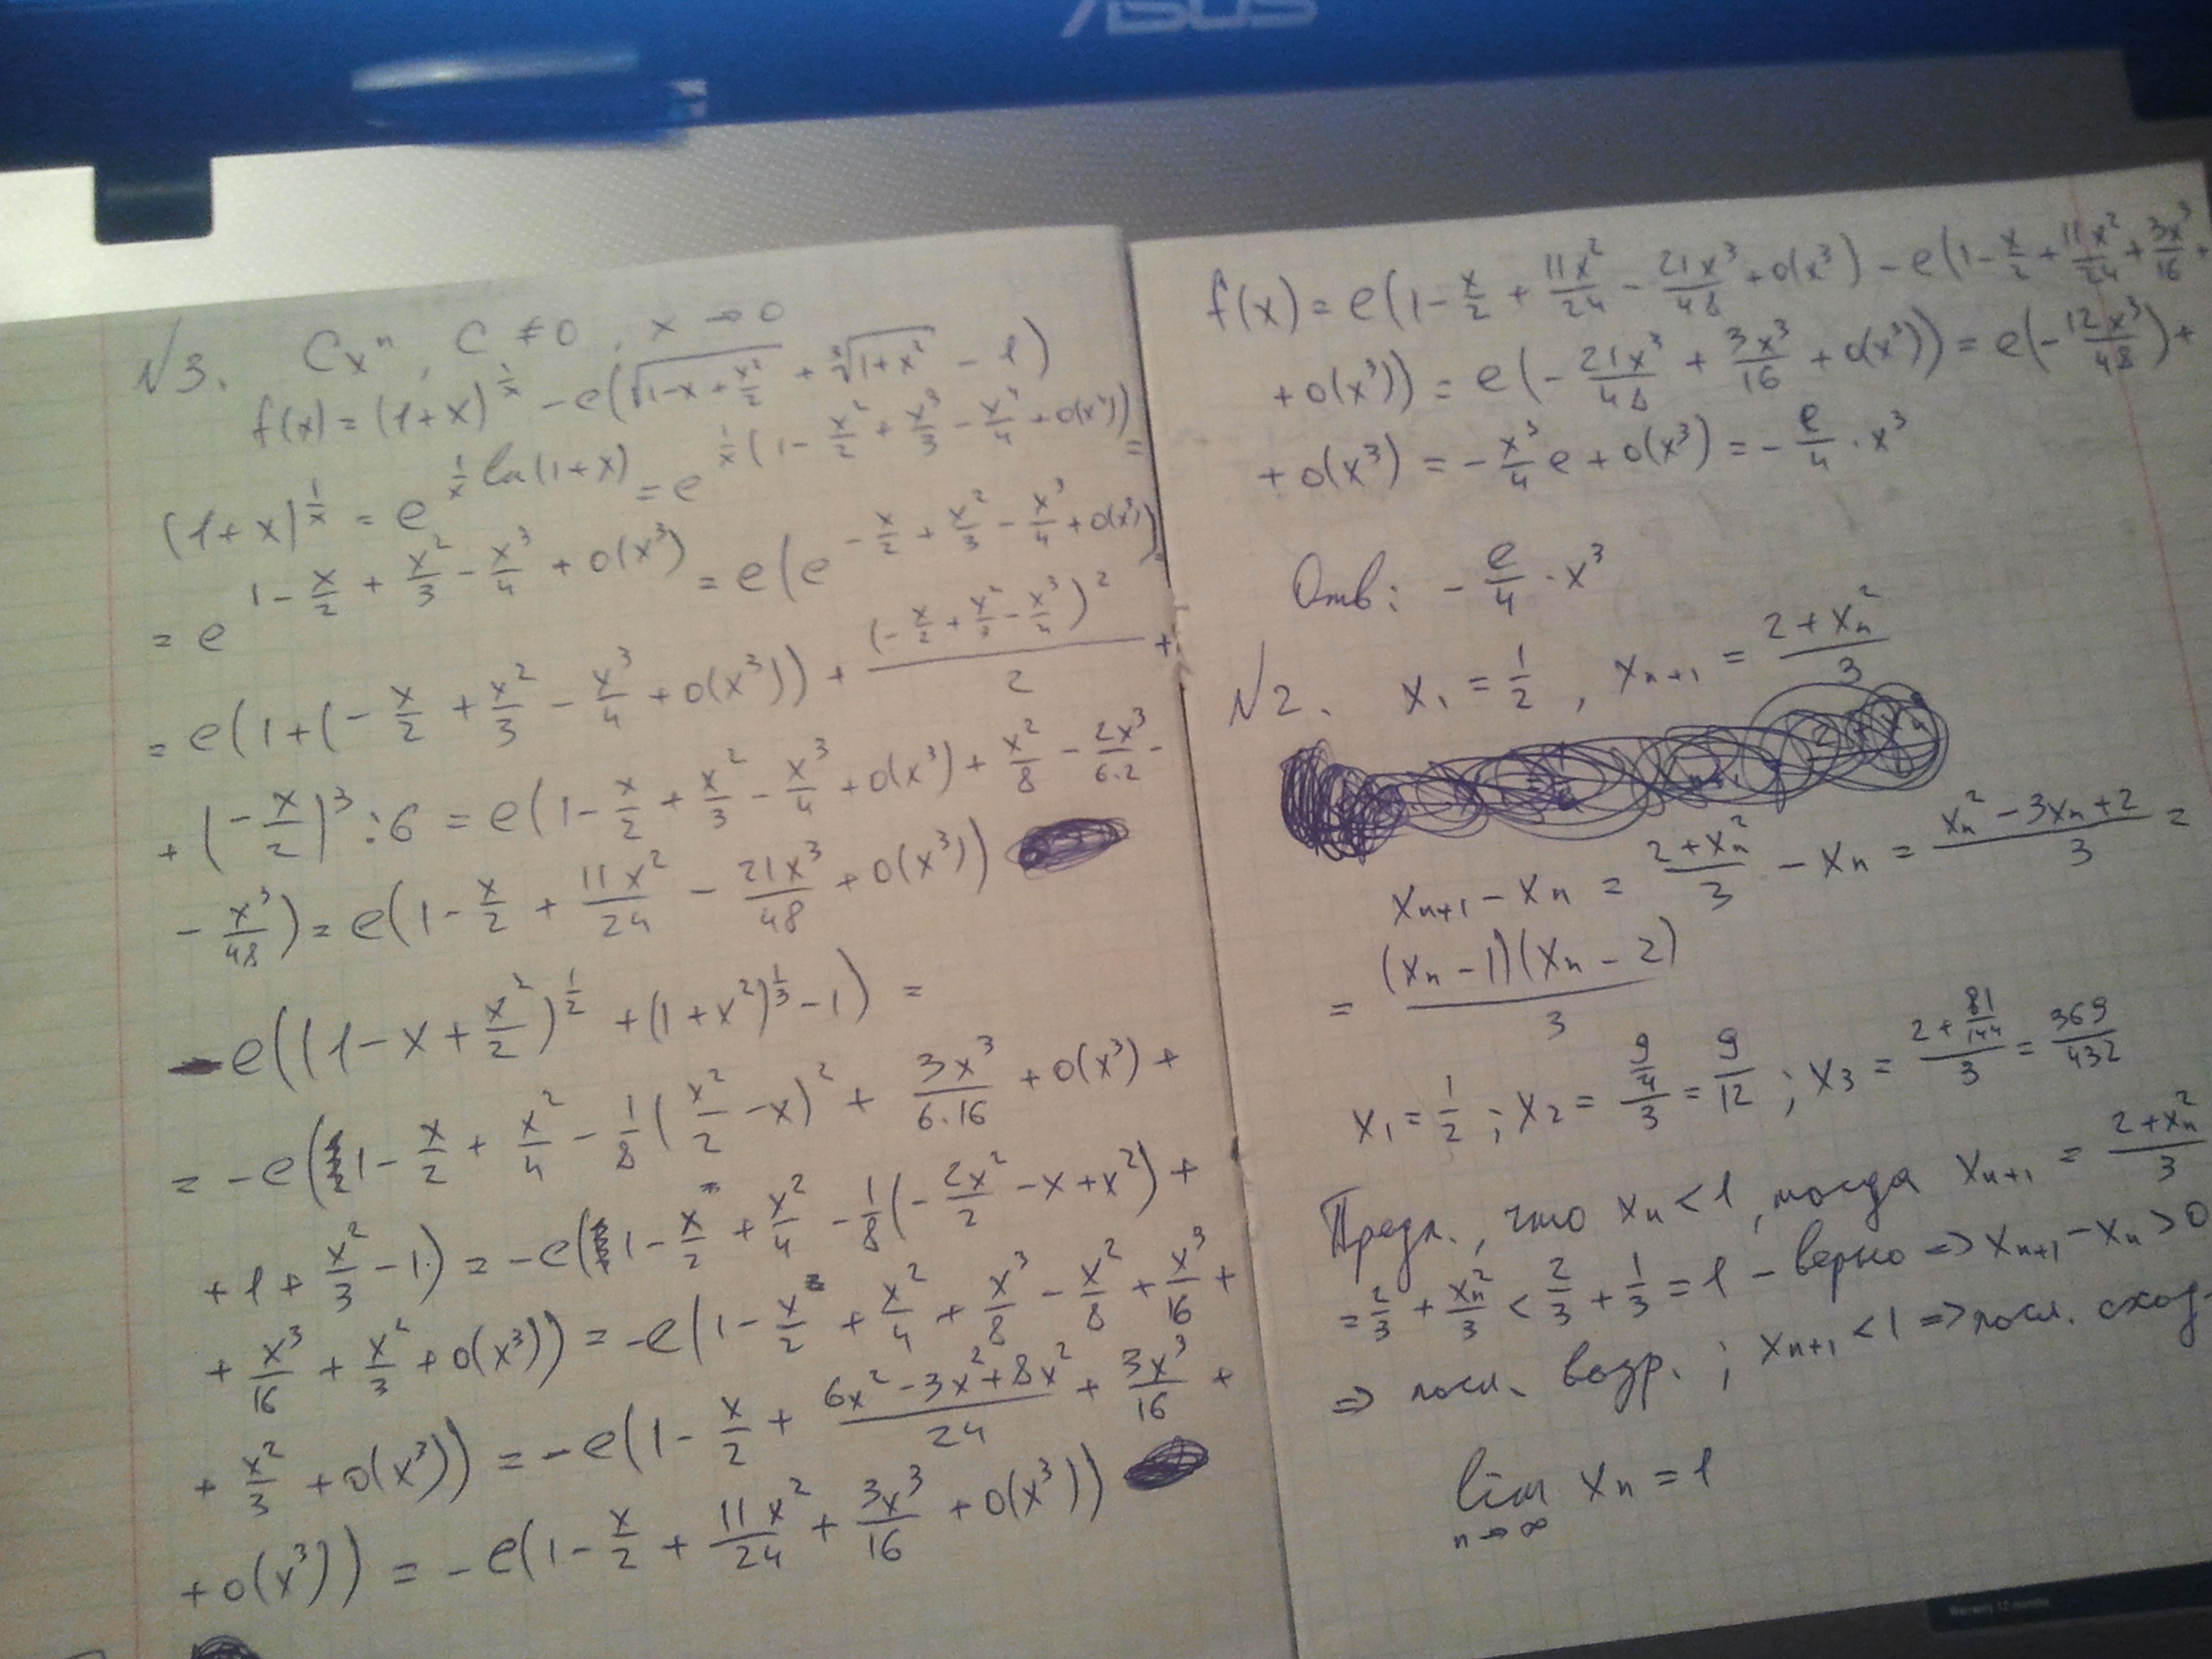 ASUS
N3. Cxⁿ, C ≠ 0, x → 0
f(x) = (1+x)^(1/x) - e(√(1-x+x²/2) + ∛(1+x²) - 1)
(1+x)^(1/x) = e^(1/x ln(1+x)) = e^(1/x(1 - x²/2 + x³/3 - x⁴/4 + o(x⁴))) =
= e^(1 - x/2 + x²/3 - x³/4 + o(x³)) = e(e^(-x/2 + x²/3 - x³/4 + o(x³))) =
= e(1+(-x/2 + x²/3 - x³/4 + o(x³)) + (-x/2 + x²/3 - x³/4)²/2 +
+ (-x/2)³:6 = e(1 - x/2 + x²/3 - x³/4 + o(x³) + x²/8 - 2x³/6·2 -
- x³/48) = e(1 - x/2 + 11x²/24 - 21x³/48 + o(x³))
- e((1-x+x²/2)^(1/2) + (1+x²)^(1/3) - 1) =
= -e(1 - x/2 + x²/4 - 1/8(x²/2 - x)² + 3x³/6·16 + o(x³) +
+ 1 + x²/3 - 1) = -e(1 - x/2 + x²/4 - 1/8(-2x²/2 - x + x²) +
+ x³/16 + x²/3 + o(x³)) = -e(1 - x/2 + x²/4 + x³/8 - x²/8 + x³/16 +
+ x²/3 + o(x³)) = -e(1 - x/2 + (6x² - 3x² + 8x²)/24 + 3x³/16 +
+ o(x³)) = -e(1 - x/2 + 11x²/24 + 3x³/16 + o(x³))
f(x) = e(1 - x/2 + 11x²/24 - 21x³/48 + o(x³) - e(1 - x/2 + 11x²/24 + 3x³/16 +
+ o(x³)) = e(-21x³/48 + 3x³/16 + o(x³)) = e(-12x³/48) +
+ o(x³) = -x³/4 e + o(x³) = -e/4 · x³
Отв: -e/4 · x³
N2. x₁ = 1/2, xₙ₊₁ = (2+xₙ²)/3
xₙ₊₁ - xₙ = (2+xₙ²)/3 - xₙ = (xₙ² - 3xₙ + 2)/3 =
= (xₙ - 1)(xₙ - 2)/3
x₁ = 1/2 ; x₂ = (9/4)/3 = 9/12 ; x₃ = (2 + 81/144)/3 = 369/432
Предл., что xₙ < 1, тогда xₙ₊₁ = (2+xₙ²)/3
= 2/3 + xₙ²/3 < 2/3 + 1/3 = 1 - верно => xₙ₊₁ - xₙ > 0
=> посл. возр. ; xₙ₊₁ < 1 => посл. сход.
lim xₙ = 1
n → ∞
Warranty 12 months